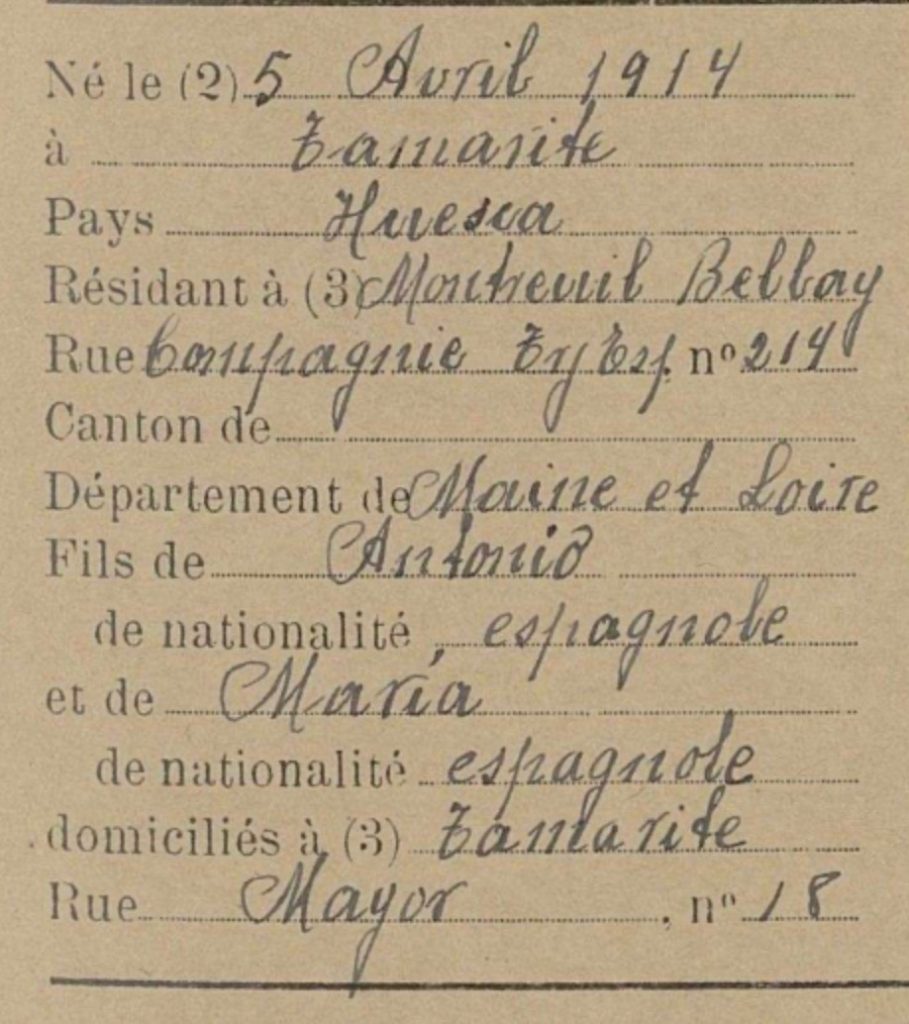 Né le (2) 5 Avril 1914
à Tamarite
Pays Huesca
Résidant à (3) Montreuil Bellay
Rue Compagnie Try Esp. nº 214
Canton de
Département de Maine et Loire
Fils de Antonio
de nationalité espagnole
et de María
de nationalité espagnole
domiciliés à (3) Tamarite
Rue Mayor, nº 18